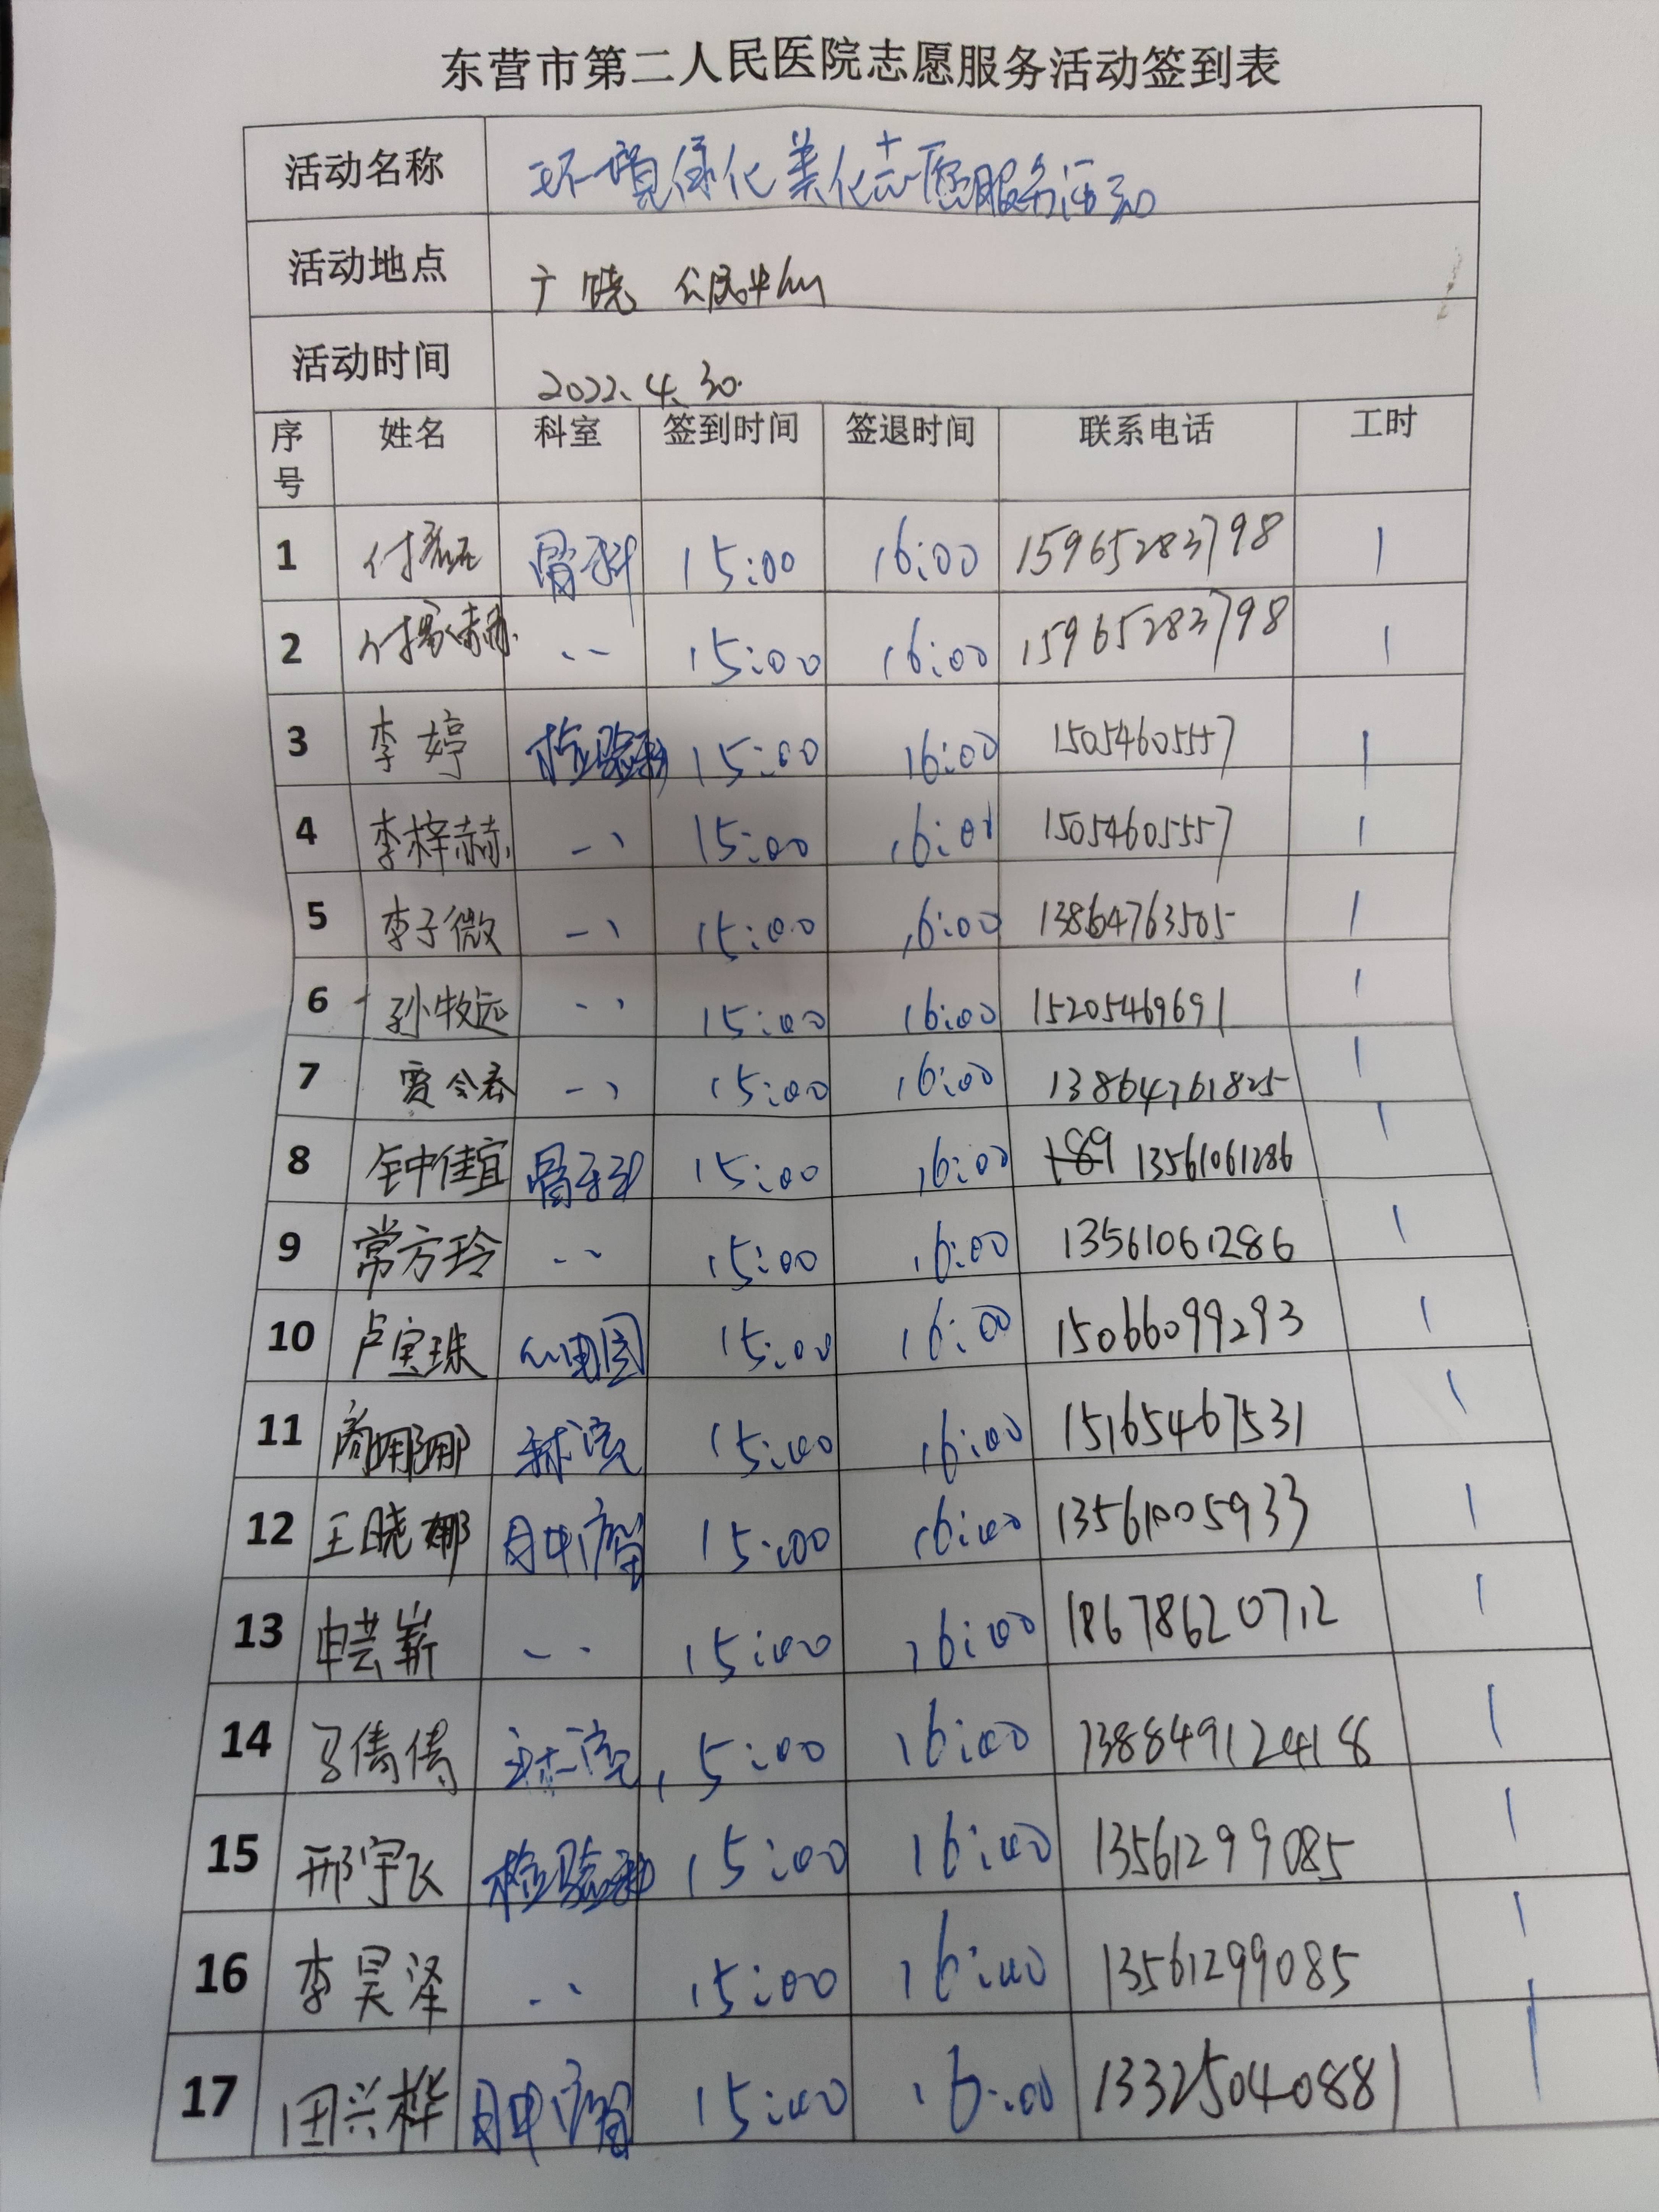 东营市第二人民医院志愿服务活动签到表
活动名称 环境绿化美化志愿服务活动
活动地点 广饶 公园中心
活动时间 2022.4.30.
序号 姓名 科室 签到时间 签退时间 联系电话 工时
1 付磊 骨科 15:00 16:00 15965283798 1
2 15:00 16:00 15965283798 1
3 李婷 检验科 15:00 16:00 15054605557 1
4 李梓赫 15:00 16:00 15054605557 1
5 李子微 15:00 16:00 13864763505 1
6 孙牧远 15:00 16:00 15205469691 1
7 贾令春 15:00 16:00 13864761825 1
8 钟佳宜 骨科 15:00 16:00 189 13561061286 1
9 常方玲 15:00 16:00 13561061286 1
10 卢宝珠 心电图 15:00 16:00 15066099293 1
11 商娜娜 15:00 16:00 15165467531 1
12 王晓娜 15:00 16:00 13561005933 1
13 申芸嶄 15:00 16:00 18678620712 1
14 马倩倩 15:00 16:00 13884912418 1
15 邢宇飞 检验科 15:00 16:00 13561299085 1
16 李昊泽 15:00 16:00 13561299085 1
17 田兴桦 15:00 16:00 13325040881 1